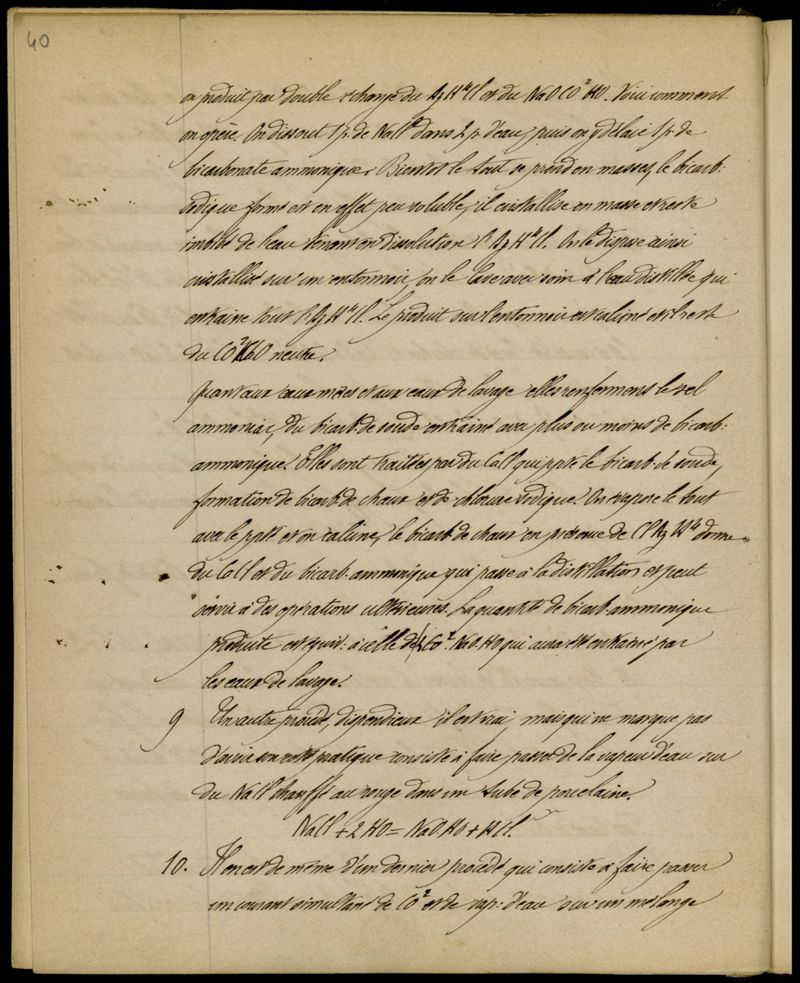 40
on produit par double échange du AzH⁴Cl et du NaO CO² HO. Voici comment
on opère. On dissout 1 p. de NaCl dans 2 p. d'eau, puis on y délaie 1 p. de
bicarbonate ammonique. Bientôt le tout se prend en masses, le bicarb:
sodique formé est en effet peu soluble, il cristallise en masse et reste
imbibé de l'eau tenant en dissolution l'AzH⁴Cl. On le dispose ainsi
cristallisé sur un entonnoir, on le lave avec soin à l'eau distillée qui
entraîne tout l'AzH⁴Cl. Le produit sur l'entonnoir est calciné et reste
du CO² NaO neutre.
Quant aux eaux mères et aux eaux de lavage elles renferment le sel
ammoniac, du bicarb. de soude entraîné avec plus ou moins de bicarb:
ammonique. Elles sont traitées par du CaCl qui ppte le bicarb. de soude,
formation de bicarb. de chaux et de chlorure sodique. On évapore le tout
avec le ppté et on calcine, le bicarb de chaux en présence de Cl AzH⁴ donne
du CaCl et du bicarb. ammonique qui passe à la distillation et peut
servir à des opérations ultérieures. La quantité de bicarb. ammonique
produite est équiv: à celle de CO². NaO. HO qui aura été entraîné par
les eaux de lavage.
9 Un autre procédé, dispendieux il est vrai, mais qui ne manque pas
d'avoir son côté pratique consiste à faire passer de la vapeur d'eau sur
du NaCl chauffé au rouge dans un tube de porcelaine.
NaCl + 2HO = NaO HO + HCl.
10. Il en est de même d'un dernier procédé qui consiste à faire passer
un courant simultané de CO² et de vap: d'eau sur un mélange